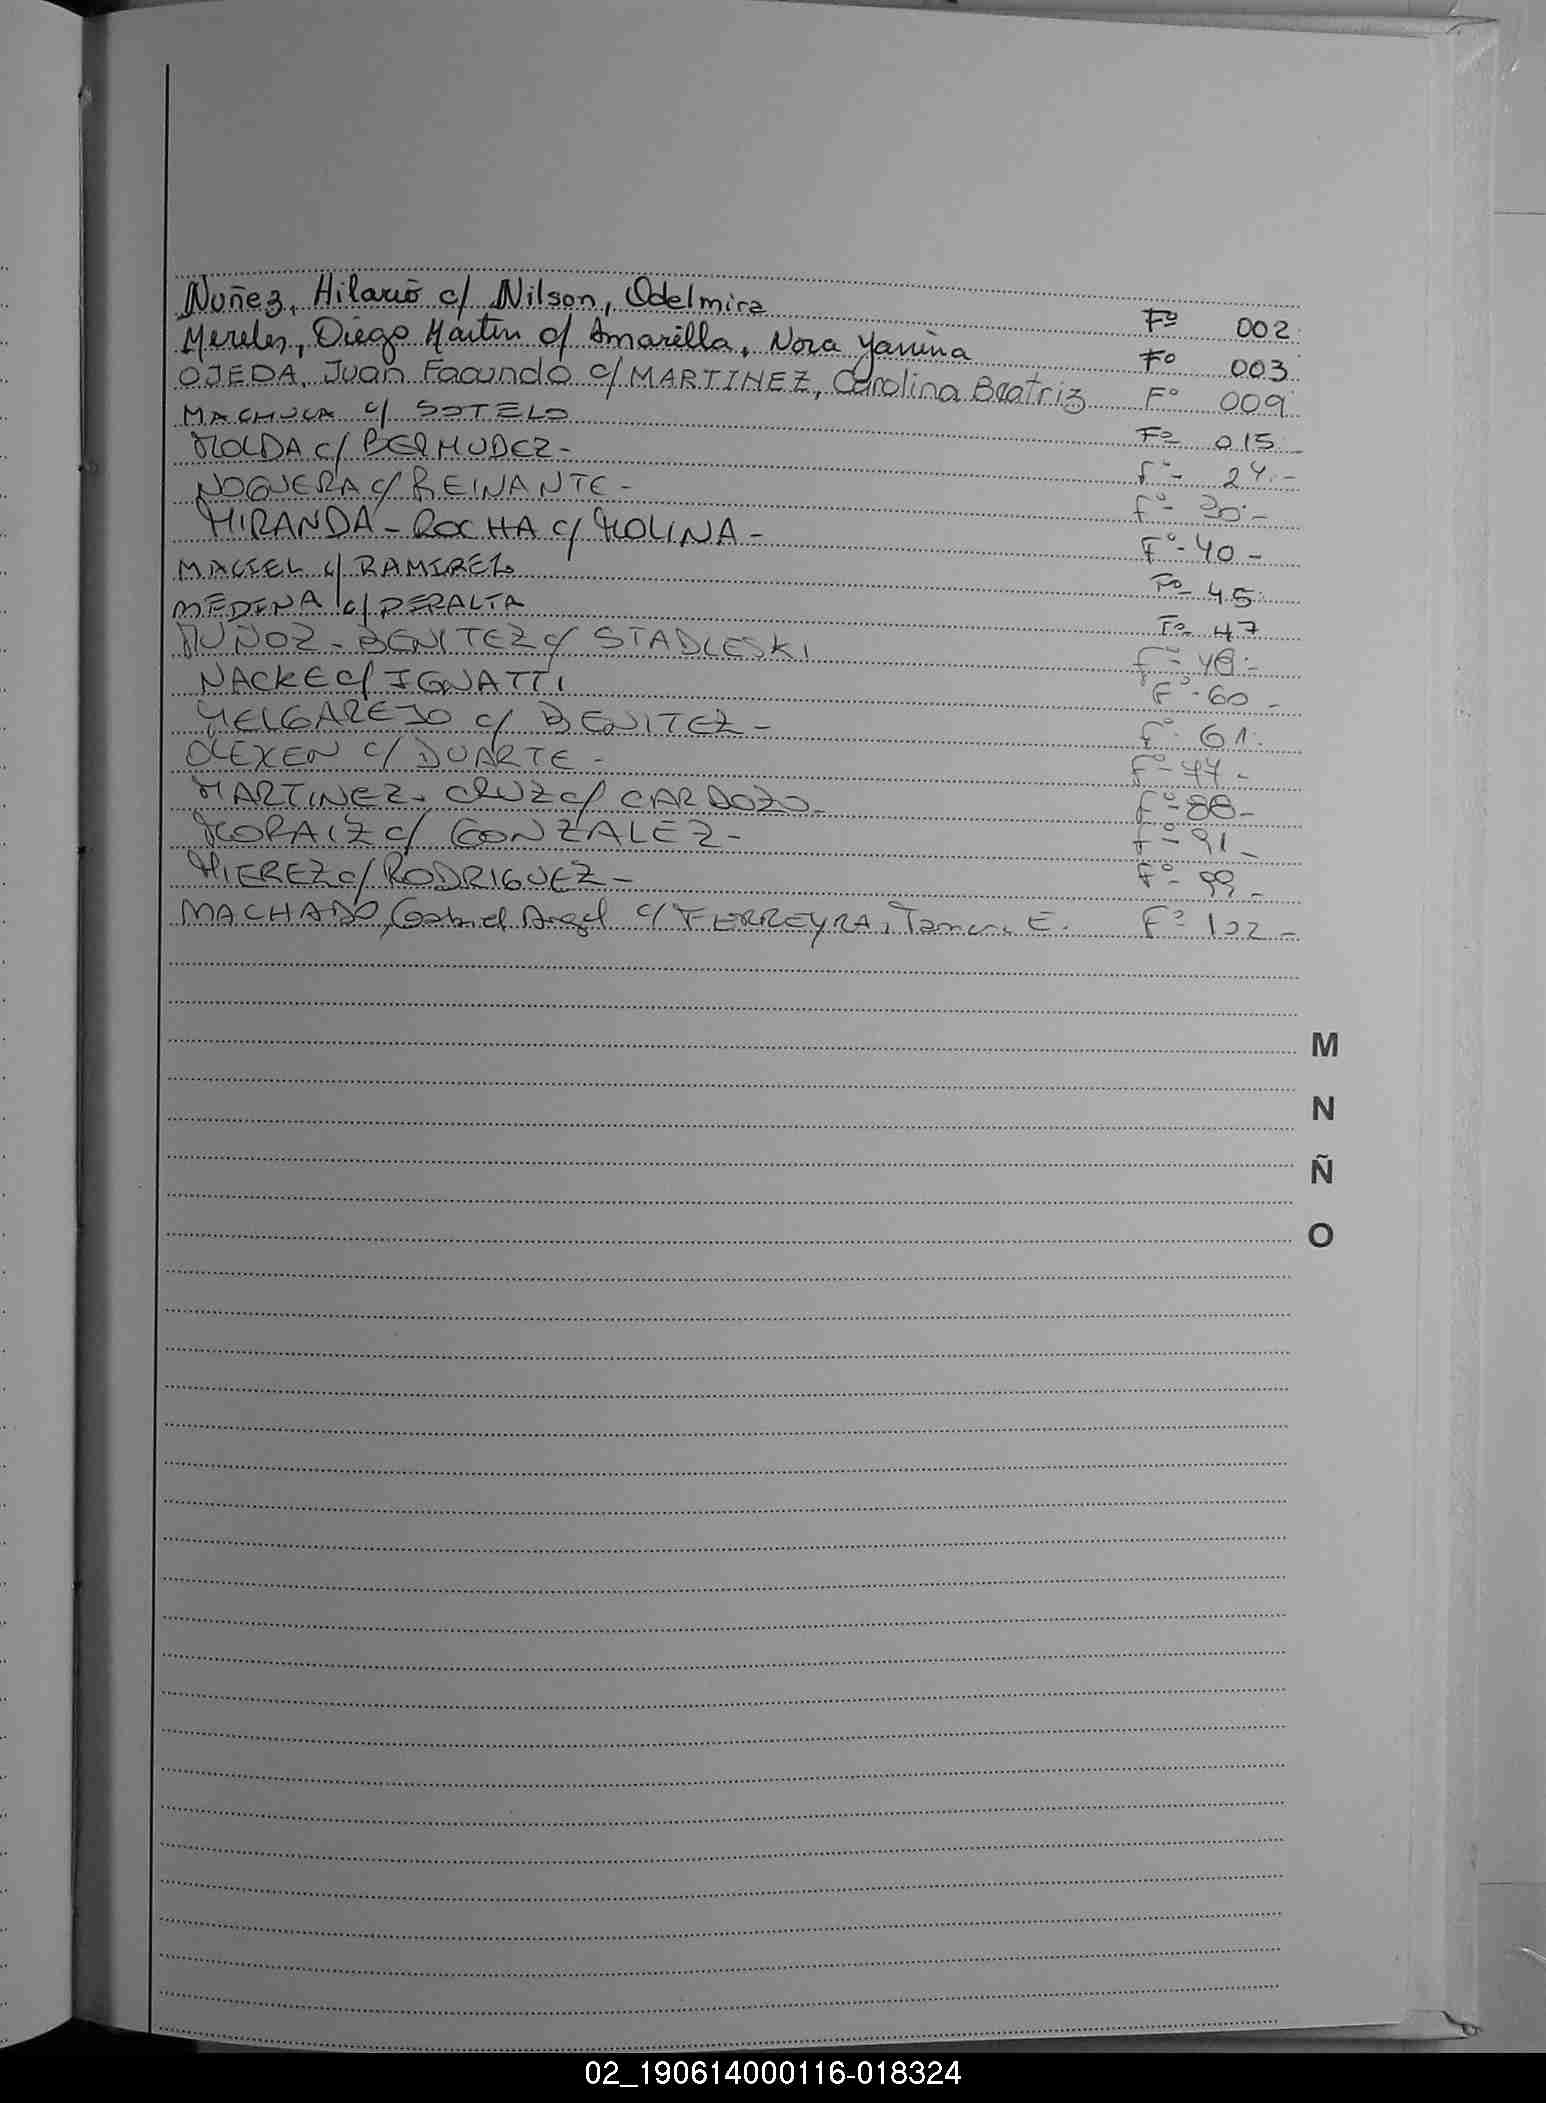 Nuñez, Hilario c/ Nilson, Odelmira Fº 002
Mereles, Diego Martin c/ Amarilla, Nora Yanina Fº 003
OJEDA, Juan Facundo c/ MARTINEZ, Carolina Beatriz Fº 009
MACHUCA c/ SOTELO Fº 015
MOLDA c/ BERMUDEZ - Fº - 24. -
NOGUERA c/ REINANTE - Fº - 30 -
MIRANDA - ROCHA c/ MOLINA - Fº - 40 -
MACIEL c/ RAMIREZ Fº 45
MEDINA c/ PERALTA Fº 47
MUÑOZ - BENITEZ c/ STADLESKI Fº - 48 -
NACKE c/ IGNATTI Fº - 60 -
MELGAREJO c/ BENITEZ - Fº 61.
OLEXEN c/ DUARTE - Fº - 77 -
MARTINEZ - CRUZ c/ CARDOZO - Fº - 88 -
MORAIZ c/ GONZALEZ - Fº - 91 -
MIEREZ c/ RODRIGUEZ - Fº - 99 -
MACHADO, Gabriel Angel c/ FERREYRA, Tamara E. Fº 102 -
M
N
Ñ
O
02_190614000116-018324